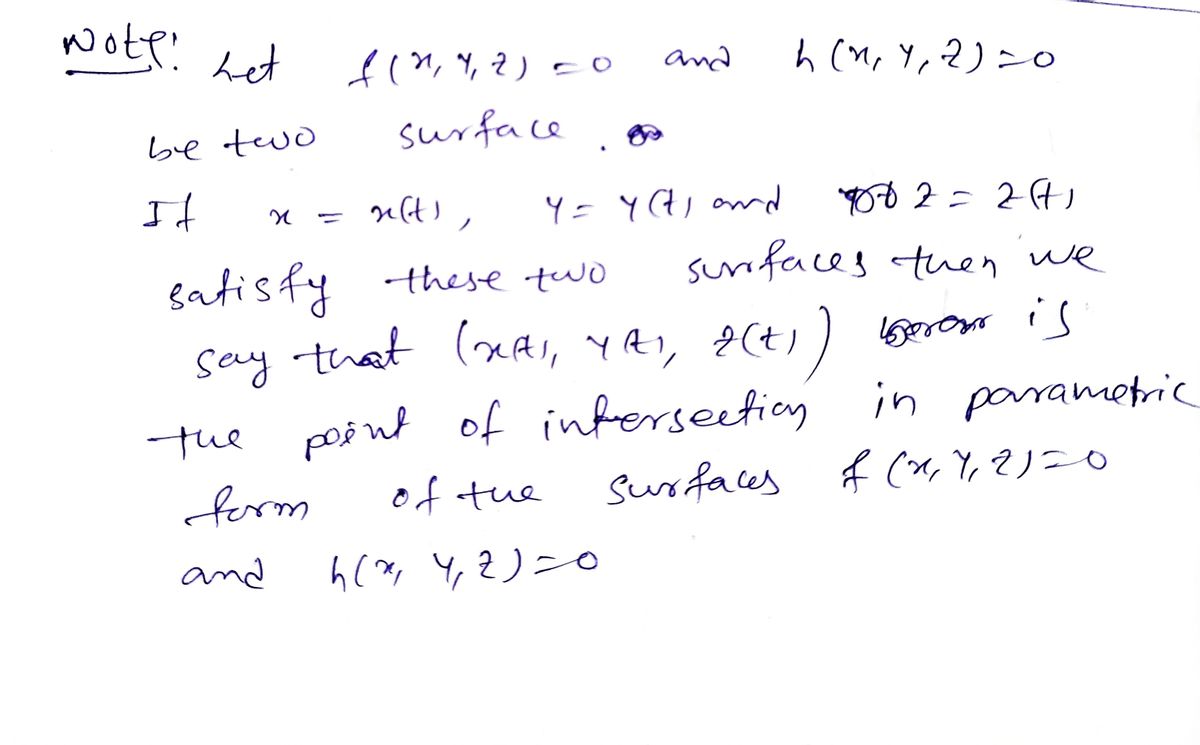 Note: Let f(x, y, z) = 0 and h(x, y, z) = 0
be two surface.
If x = x(t), y = y(t) and z = z(t)
satisfy these two surfaces then we
say that (x(t), y(t), z(t)) is
the point of intersection in parametric
form of the surfaces f(x, y, z) = 0
and h(x, y, z) = 0